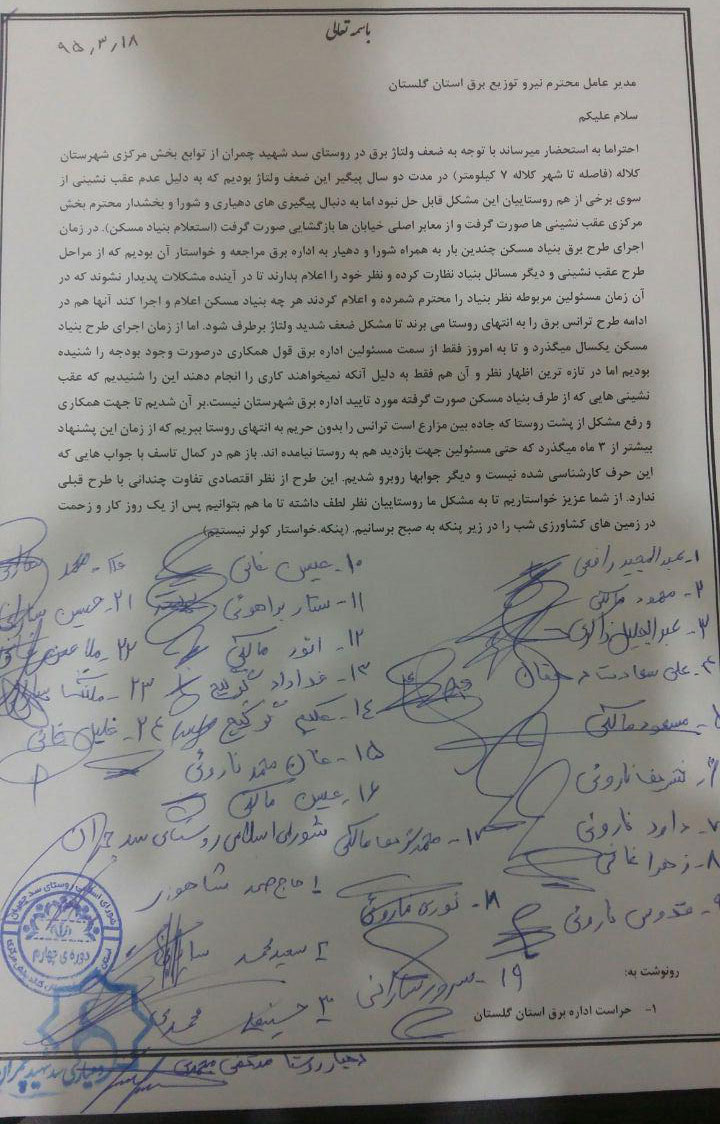 باسمه تعالی
۹۵,۳,۱۸
مدیر عامل محترم نیرو توزیع برق استان گلستان
سلام علیکم
احتراما به استحضار میرساند با توجه به ضعف ولتاژ برق در روستای سد شهید چمران از توابع بخش مرکزی شهرستان
کلاله (فاصله تا شهر کلاله ۷ کیلومتر) در مدت دو سال پیگیر این ضعف ولتاژ بودیم که به دلیل عدم عقب نشینی از
سوی برخی از هم روستاییان این مشکل قابل حل نبود اما به دنبال پیگیری های دهیاری و شورا و بخشدار محترم بخش
مرکزی عقب نشینی ها صورت گرفت و از معابر اصلی خیابان ها بازگشایی صورت گرفت (استعلام بنیاد مسکن). در زمان
اجرای طرح برق بنیاد مسکن چندین بار به همراه شورا و دهیار به اداره برق مراجعه و خواستار آن بودیم که از مراحل
طرح عقب نشینی و دیگر مسائل بنیاد نظارت کرده و نظر خود را اعلام بدارند تا در آینده مشکلات پدیدار نشوند که در
آن زمان مسئولین مربوطه نظر بنیاد را محترم شمرده و اعلام کردند هر چه بنیاد مسکن اعلام و اجرا کند آنها هم در
ادامه طرح ترانس برق را به انتهای روستا می برند تا مشکل ضعف شدید ولتاژ برطرف شود. اما از زمان اجرای طرح بنیاد
مسکن یکسال میگذرد و تا به امروز فقط از سمت مسئولین اداره برق قول همکاری درصورت وجود بودجه را شنیده
بودیم اما در تازه ترین اظهار نظر و آن هم فقط به دلیل آنکه نمیخواهند کاری را انجام دهند این را شنیدیم که عقب
نشینی هایی که از طرف بنیاد مسکن صورت گرفته مورد تایید اداره برق شهرستان نیست.بر آن شدیم تا جهت همکاری
و رفع مشکل از پشت روستا که جاده بین مزارع است ترانس را بدون حریم به انتهای روستا ببریم که از زمان این پشنهاد
بیشتر از ۳ ماه میگذرد که حتی مسئولین جهت بازدید هم به روستا نیامده اند. باز هم در کمال تاسف با جواب هایی که
این حرف کارشناسی شده نیست و دیگر جوابها روبرو شدیم. این طرح از نظر اقتصادی تفاوت چندانی با طرح قبلی
ندارد. از شما عزیز خواستاریم تا به مشکل ما روستاییان نظر لطف داشته تا ما هم بتوانیم پس از یک روز کار و زحمت
در زمین های کشاورزی شب را در زیر پنکه به صبح برسانیم. (پنکه.خواستار کولر نیستیم)
۱- عبدالمجید رافعی
۲- مهمود مالکی
۳- عبدالجلیل ذاکری
۴- علی سعادت دهقان
مسعود مالکی
شریف ناروئی
۷- داود ناروئی
۸- زهرا غانی
۹- قدوس ناروئی
۱۰- عیسی غانی
۱۱- ستار براهوئی
۱۲- انور مالکی
۱۳- خداداد گرگیج
۱۴- حکیم گرگیج
۱۵- خان محمد ناروئی
۱۶- عیسی مالکی
۱۷- محمد مالکی
۱۸- نوری ناروئی
۱۹- سرور سارانی
محمد
۲۱- حسین
۲۲- غلام
۲۳-
۲۴- خلیل غانی
شورای اسلامی روستای سد چمران
۱ حاج صمد شاهوزر
۲ سعید محمد سارانی
۳ حسینعلی محمدی
شورای اسلامی روستای سد چمران
دوره ی چهارم
رونوشت به:
۱- حراست اداره برق استان گلستان
دهیار روستا محمدی
دهیاری سد شهید چمران